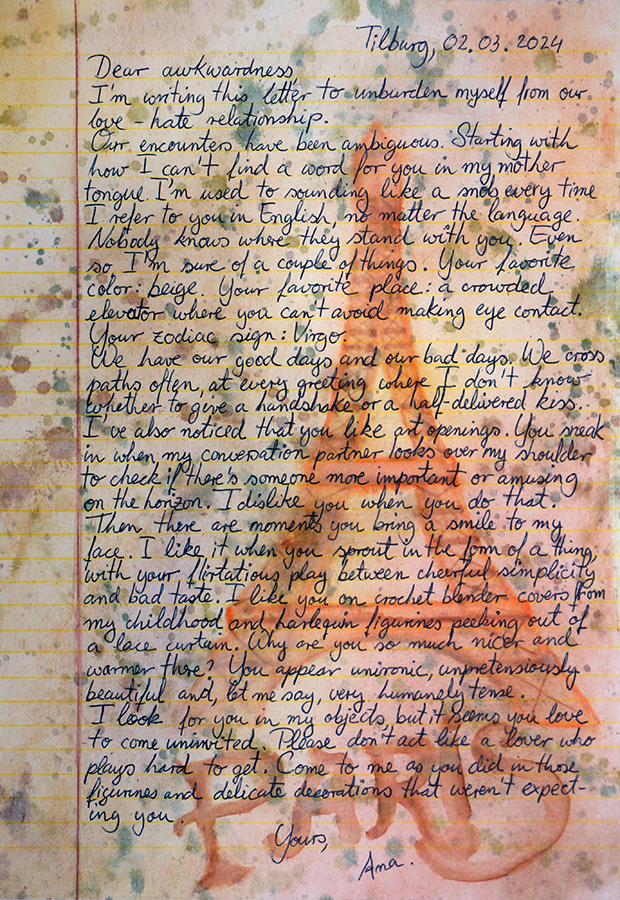 Tilburg, 02.03.2024
Dear awkwardness,
I'm writing this letter to unburden myself from our
love-hate relationship.
Our encounters have been ambiguous. Starting with
how I can't find a word for you in my mother
tongue. I'm used to sounding like a snob every time
I refer to you in English, no matter the language.
Nobody knows where they stand with you. Even
so, I'm sure of a couple of things. Your favorite
color: beige. Your favorite place: a crowded
elevator where you can't avoid making eye contact.
Your zodiac sign: Virgo.
We have our good days and our bad days. We cross
paths often, at every greeting where I don't know
whether to give a handshake or a half-delivered kiss.
I've also noticed that you like art openings. You sneak
in when my conversation partner looks over my shoulder
to check if there's someone more important or amusing
on the horizon. I dislike you when you do that.
Then there are moments you bring a smile to my
face. I like it when you sprout in the form of a thing,
with your flirtatious play between cheerful simplicity
and bad taste. I like you on crochet blender covers from
my childhood and harlequin figurines peeking out of
a lace curtain. Why are you so much nicer and
warmer there? You appear unironic, unpretensiously
beautiful and, let me say, very humanely tense.
I look for you in my objects, but it seems you love
to come uninvited. Please don't act like a lover who
plays hard to get. Come to me as you did in those
figurines and delicate decorations that weren't expect-
ing you.
Yours,
Ana.
PARIS